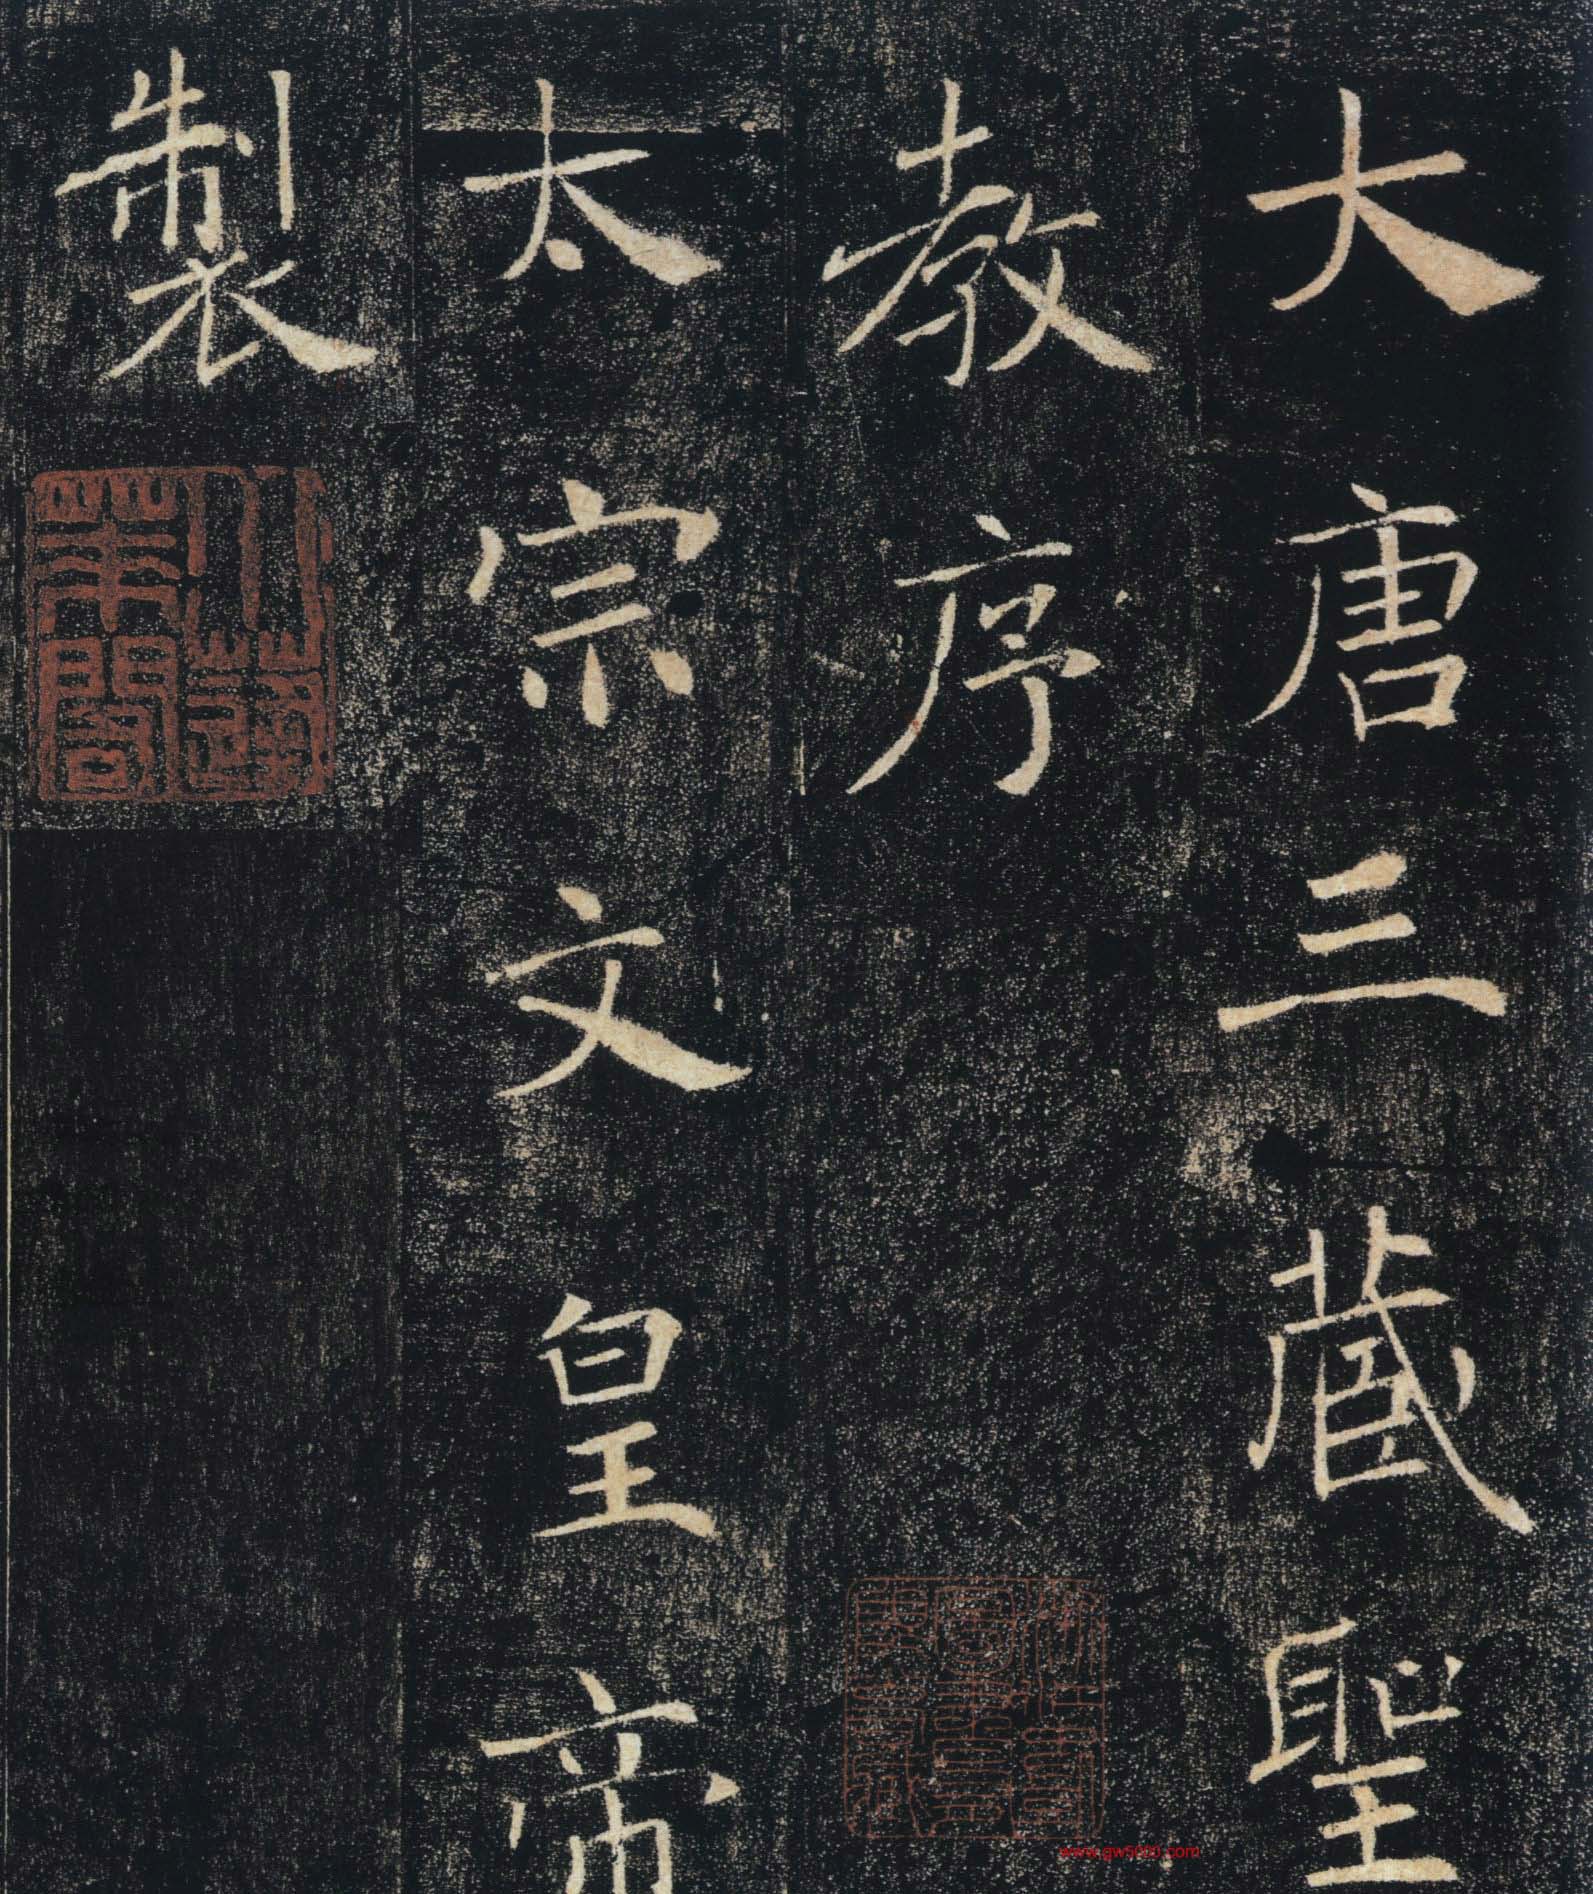 大唐三藏聖
教序
太宗文皇帝
製
www.gw5000.com